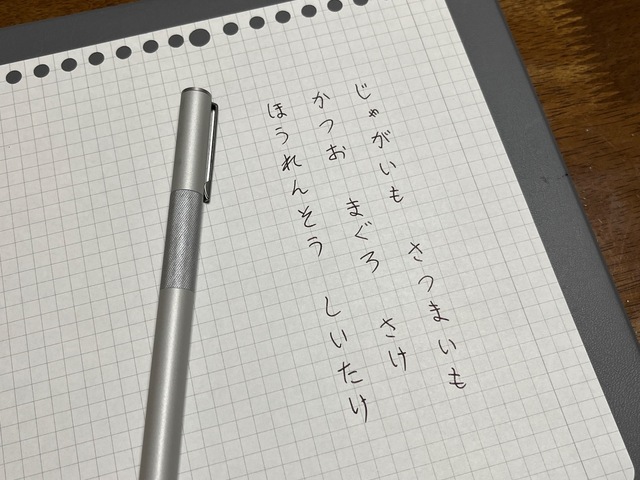 じゃがいも さつまいも
かつお まぐろ さけ
ほうれんそう しいたけ